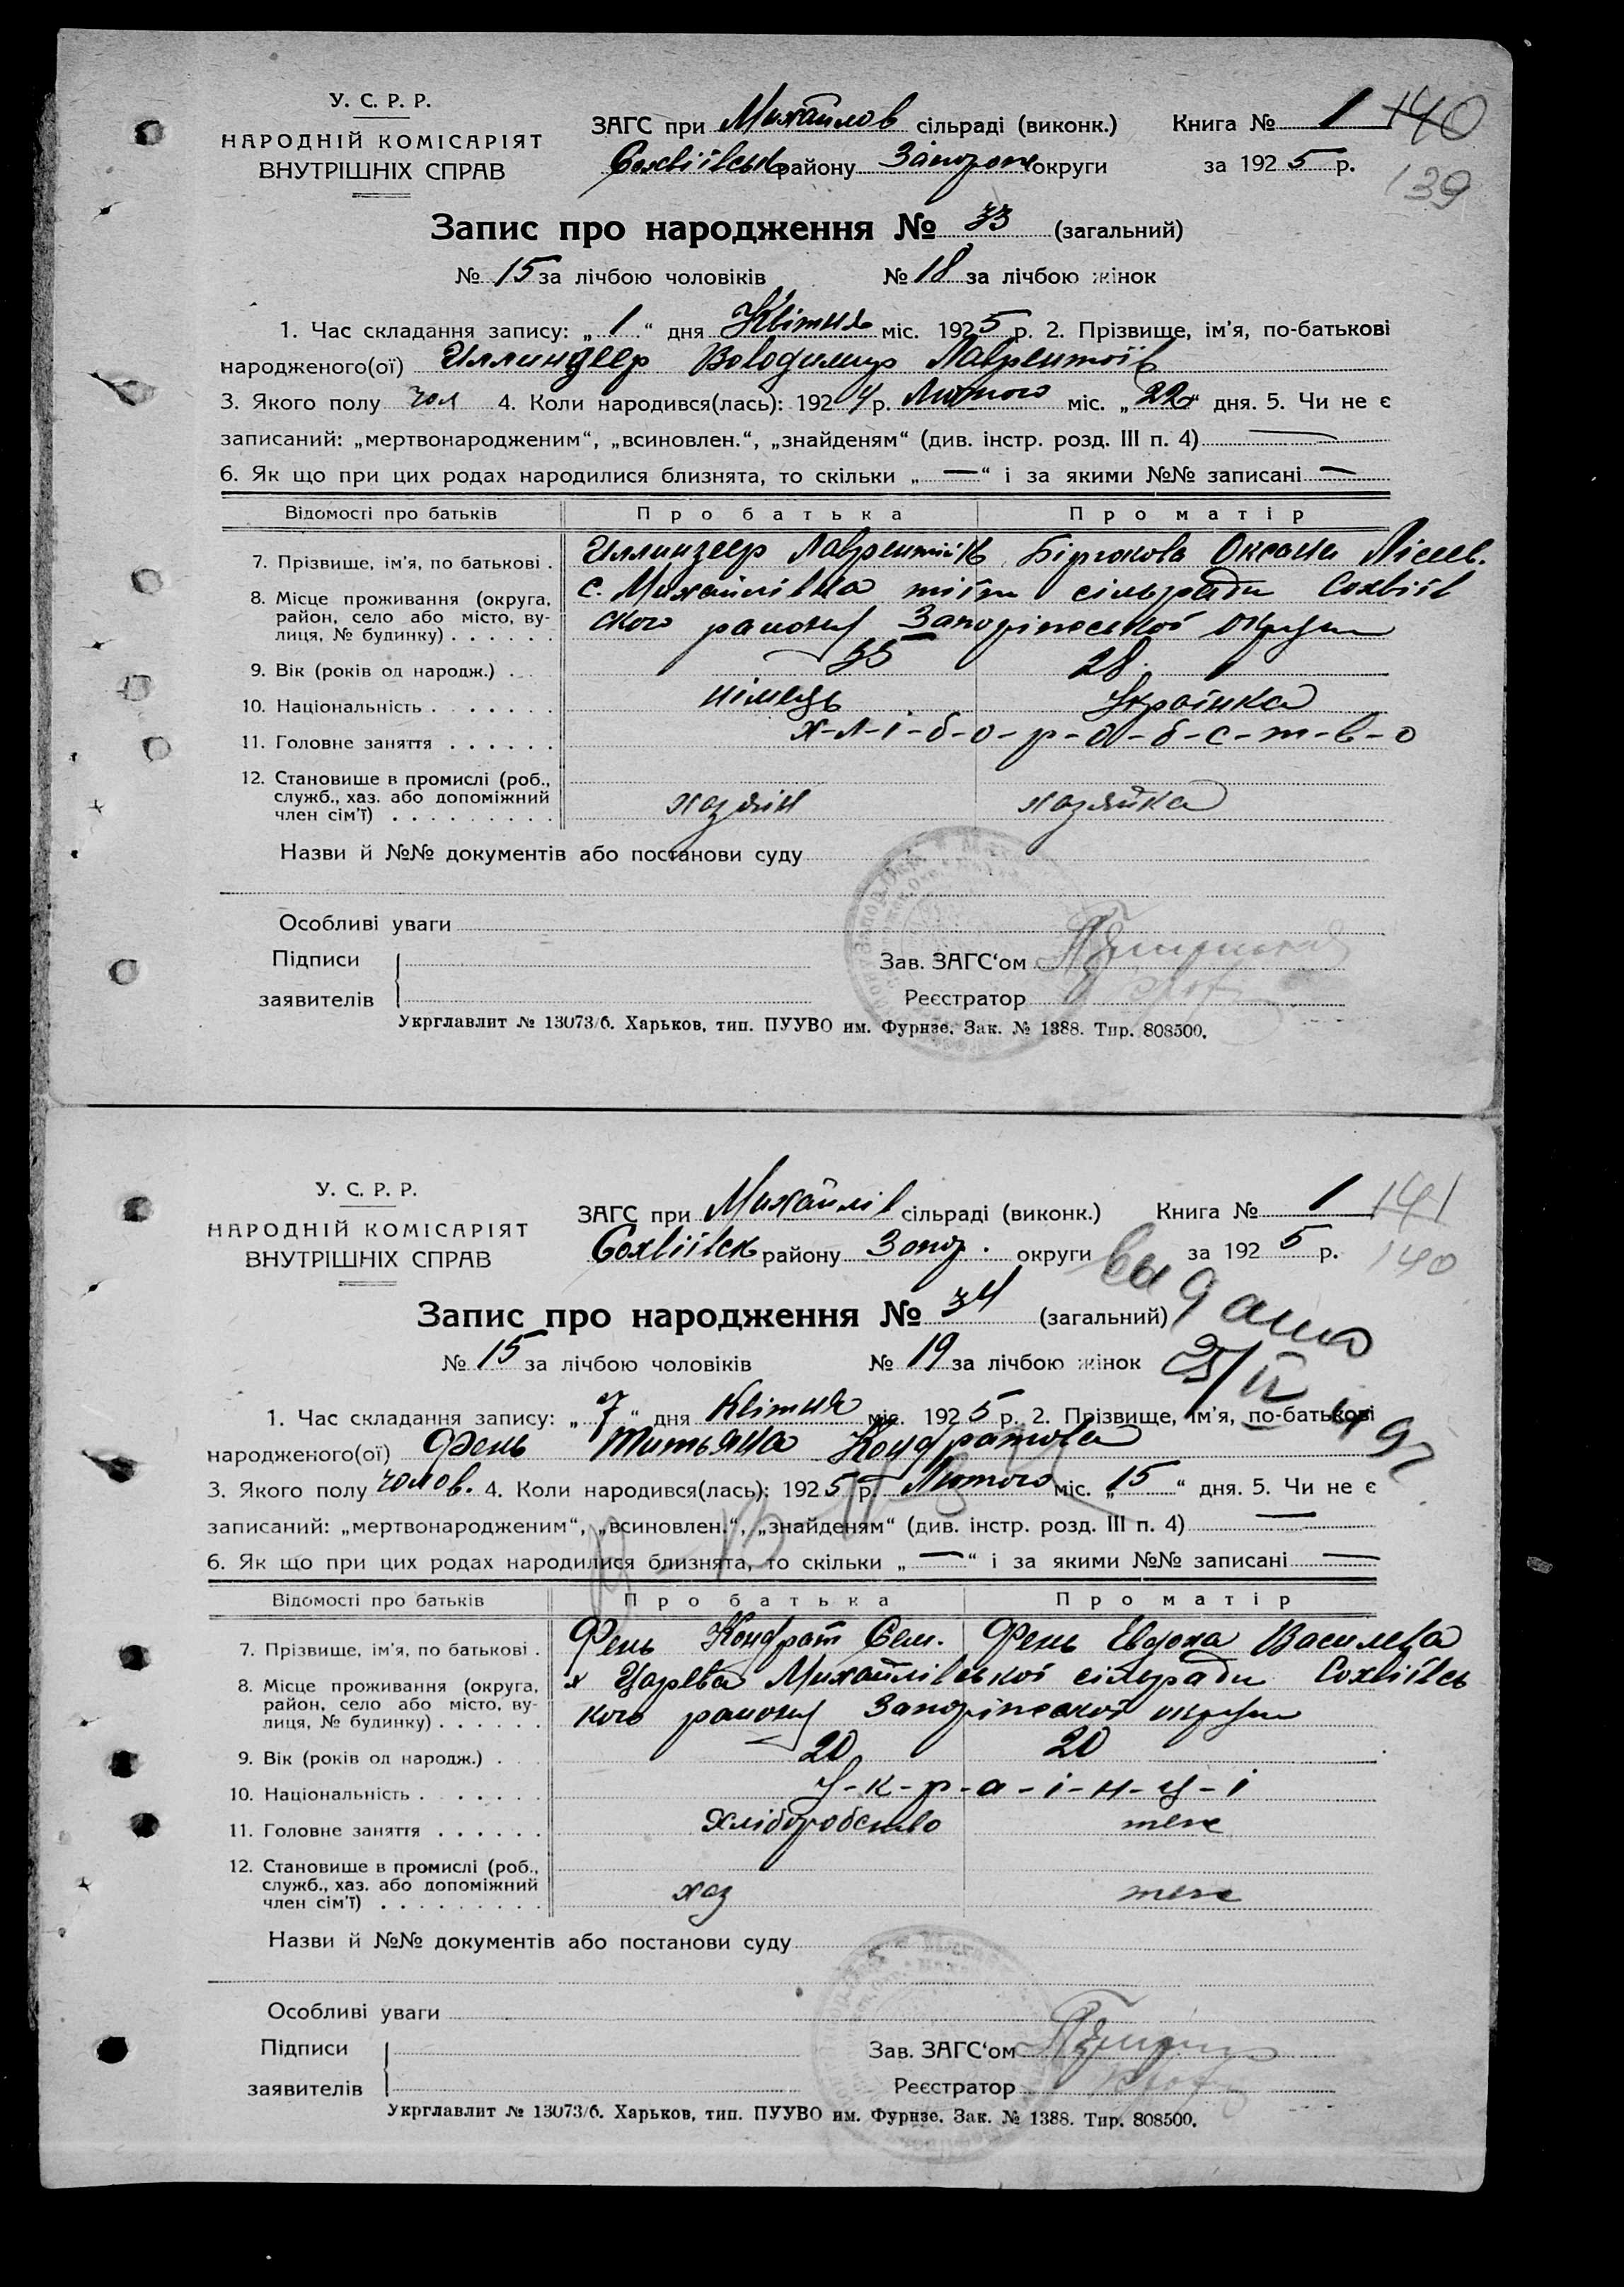 У. С. Р. Р.
НАРОДНІЙ КОМІСАРІЯТ
ВНУТРІШНІХ СПРАВ
ЗАГС при Михайлов сільраді (виконк.) Книга № 1 140
Сохвіївськ району Запорож округи за 1925 р. 139
Запис про народження № 33 (загальний)
№ 15 за лічбою чоловіків № 18 за лічбою жінок
1. Час складання запису: „ 1 “ дня Квітня міс. 1925 р. 2. Прізвище, ім’я, по-батькові
народженого(ої) Володимир Лаврентоїв
3. Якого полу чол 4. Коли народився(лась): 1924 р. Лютого міс. „ 22 “ дня. 5. Чи не є
записаний: „мертвонародженим“, „всиновлен.“, „знайденям“ (див. інстр. розд. III п. 4) —
6. Як що при цих родах народилися близнята, то скільки „ — “ і за якими №№ записані —
Відомості про батьків Про батька Про матір
7. Прізвище, ім’я, по батькові . Лаврентій Бірюкова Оксана
8. Місце проживання (округа, район, село або місто, вулиця, № будинку) . . . . . . с. Михайлівка тієїж сільради Сохвіїв
ского району Запоріжської округи
9. Вік (років од народж.) . . . 35 28
10. Національність . . . . . . . німець Українка
11. Головне заняття . . . . . . х-л-і-б-о-р-о-б-с-т-в-о
12. Становище в промислі (роб., служб., хаз. або допоміжний член сім’ї) . . . . . . . . . хазяїн хазяйка
Назви й №№ документів або постанови суду
Особливі уваги
Підписи
заявителів
Зав. ЗАГС‘ом
Реєстратор
Укрглавлит № 13073/6. Харьков, тип. ПУУВО им. Фурнзе. Зак. № 1388. Тир. 808500.
У. С. Р. Р.
НАРОДНІЙ КОМІСАРІЯТ
ВНУТРІШНІХ СПРАВ
ЗАГС при Михайлів сільраді (виконк.) Книга № 1 141
Сохвіївск району Запор. округи за 1925 р. 140
выдано
Запис про народження № 34 (загальний)
№ 15 за лічбою чоловіків № 19 за лічбою жінок
1. Час складання запису: „ 7 “ дня Квітня міс. 1925 р. 2. Прізвище, ім’я, по-батькові
народженого(ої) Фень Титьяна Кондратова
3. Якого полу чолов. 4. Коли народився(лась): 1925 р. Лютого міс. „ 15 “ дня. 5. Чи не є
записаний: „мертвонародженим“, „всиновлен.“, „знайденям“ (див. інстр. розд. III п. 4) —
6. Як що при цих родах народилися близнята, то скільки „ — “ і за якими №№ записані —
Відомості про батьків Про батька Про матір
7. Прізвище, ім’я, по батькові . Фень Кондрат Сем. Фень Евдоха Василева
8. Місце проживання (округа, район, село або місто, вулиця, № будинку) . . . . . . х Царева Михайлівської сільради Сохвіївсь
кого району Запоріжской округи
9. Вік (років од народж.) . . . 20 20
10. Національність . . . . . . . У-к-р-а-ї-н-ц-і
11. Головне заняття . . . . . . Хліборобство теж
12. Становище в промислі (роб., служб., хаз. або допоміжний член сім’ї) . . . . . . . . . хаз теж
Назви й №№ документів або постанови суду
Особливі уваги
Підписи
заявителів
Зав. ЗАГС‘ом
Реєстратор
Укрглавлит № 13073/6. Харьков, тип. ПУУВО им. Фурнзе. Зак. № 1388. Тир. 808500.